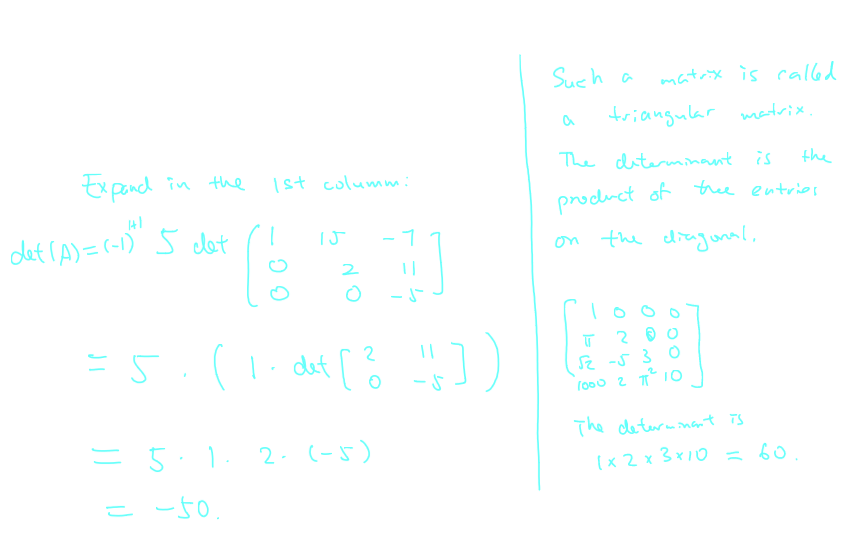 Expand in the 1st column:
det(A) = (-1)^{1+1} 5 det [ 1 15 -7
0 2 11
0 0 -5 ]
= 5 . ( 1 . det [ 2 11
0 -5 ] )
= 5 . 1 . 2 . (-5)
= -50.
Such a matrix is called
a triangular matrix.
The determinant is the
product of the entries
on the diagonal.
[ 1 0 0 0
π 2 0 0
√2 -5 3 0
1000 2 π² 10 ]
The determinant is
1 x 2 x 3 x 10 = 60.